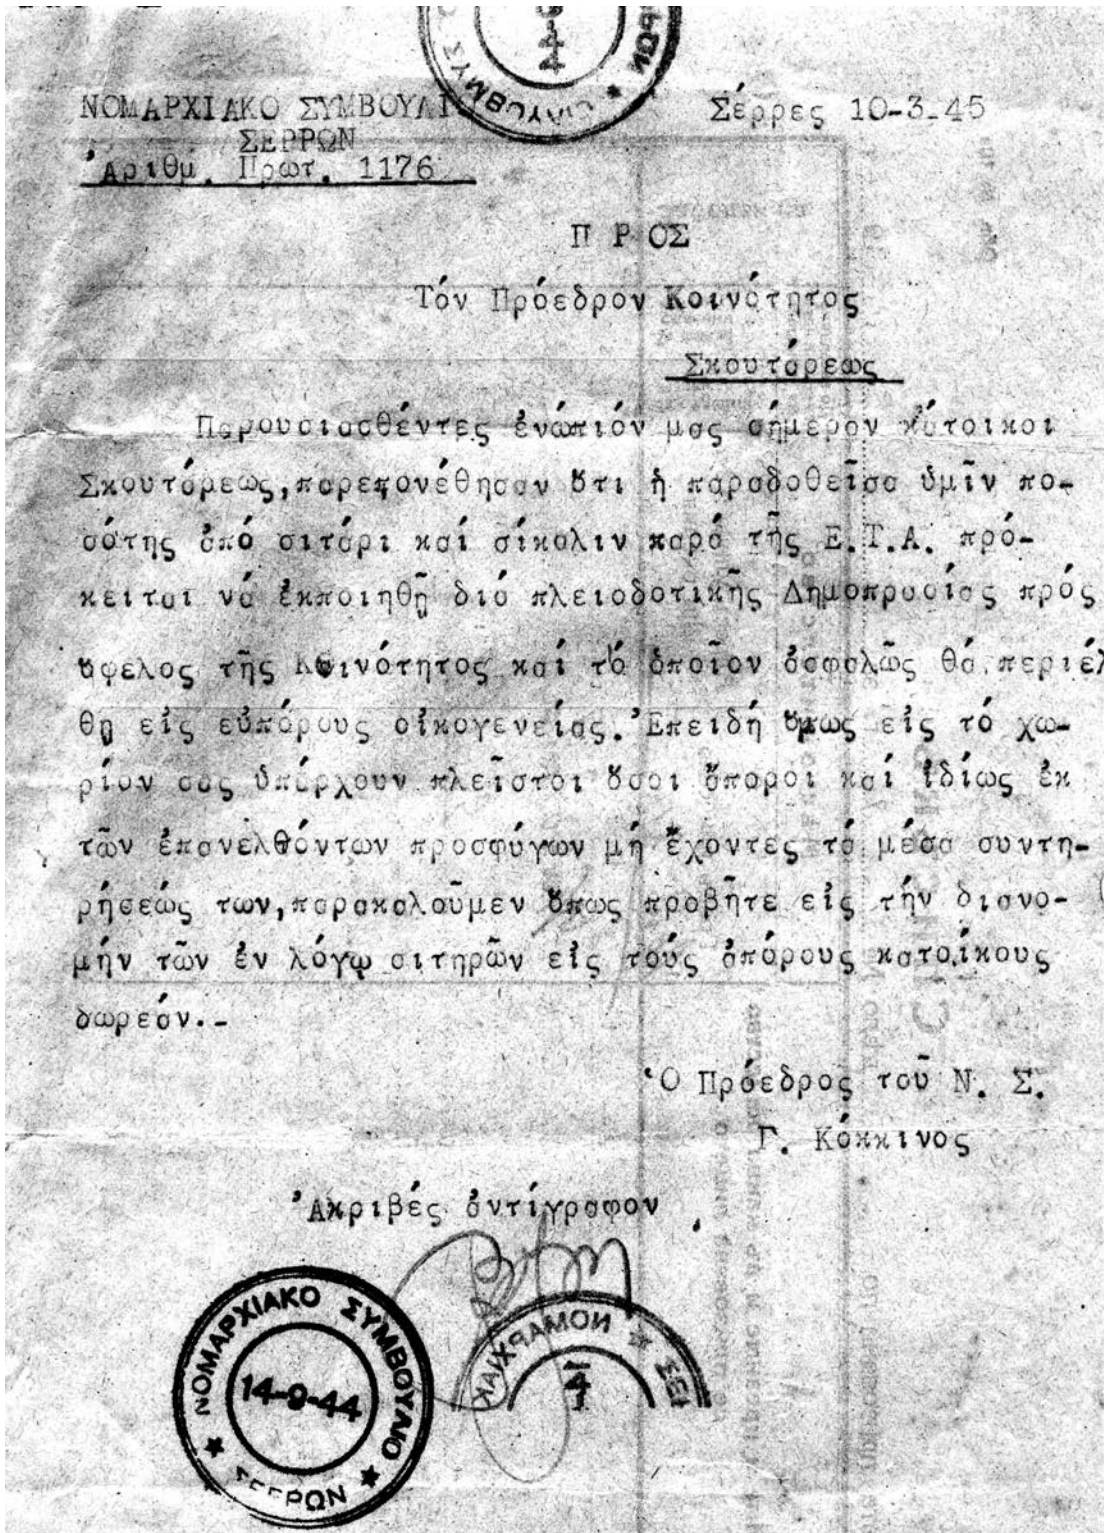 ΝΟΜΑΡΧΙΑΚΟ ΣΥΜΒΟΥΛΙ
Σέρρες 10-3-45
ΣΕΡΡΩΝ
Ἀριθμ. Πρωτ. 1176
Π Ρ ΟΣ
Τόν Πρόεδρον Κοινότητος
Σκουτάρεως
Παρουσιασθέντες ἐνώπιόν μας σήμερον κάτοικοι
Σκουτάρεως,παρεπονέθησαν ὅτι ἡ παραδοθεῖσα ὑμῖν πο-
σότης ἀπό σιτάρι καί σίκαλιν παρά τῆς Ε.Τ.Α. πρό-
κειται νά ἐκποιηθῇ διά πλειοδοτικῆς Δημοπρασίας πρός
ὄφελος τῆς Κοινότητος καί τό ὁποῖον ἀσφαλῶς θά περιέλ
θῃ εἰς εὐπόρους οἰκογενείας. Ἐπειδή ὅμως εἰς τό χω-
ρίον σας ὑπάρχουν πλεῖστοι ὅσοι ἄποροι καί ἰδίως ἐκ
τῶν ἐπανελθόντων προσφύγων μή ἔχοντες τά μέσα συντη-
ρήσεώς των,παρακαλοῦμεν ὅπως προβῆτε εἰς τήν διανο-
μήν τῶν ἐν λόγῳ σιτηρῶν εἰς τούς ἀπόρους κατοίκους
δωρεάν.-
Ὁ Πρόεδρος τοῦ Ν. Σ.
Γ. Κόκκινος
Ἀκριβές ἀντίγραφον
ΝΟΜΑΡΧΙΑΚΟ ΣΥΜΒΟΥΛΙΟ
14-9-44
ΣΕΡΡΩΝ
ΝΟΜΑΡΧΙΑΚ